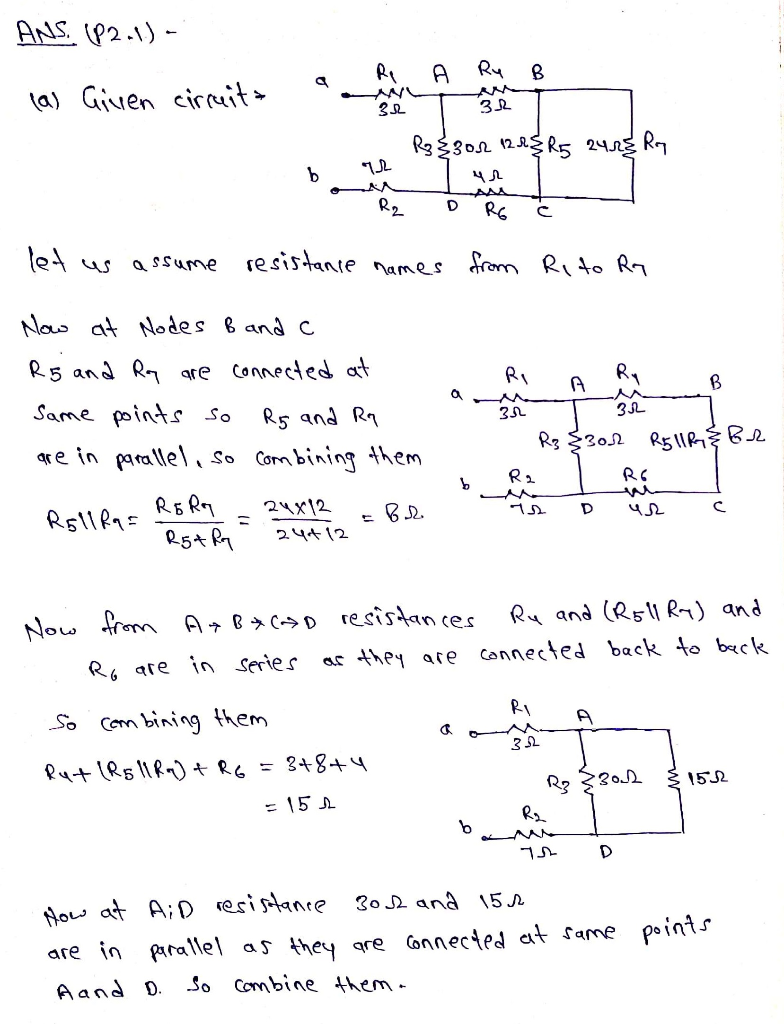 ANS. (P2.1) -
(a) Given circuit →
a R1 A R4 B
3Ω 3Ω
R3 30Ω 12Ω R5 24Ω R7
b 7Ω 4Ω
R2 D R6 C
let us assume resistance names from R1 to R7
Now at Nodes B and C
R5 and R7 are connected at
Same points so R5 and R7
are in parallel, so combining them
R5||R7 = R5R7 / R5+R7 = 24×12 / 24+12 = 8Ω
a R1 A R4 B
3Ω 3Ω
R3 30Ω R5||R7 8Ω
b R2 R6
7Ω D 4Ω C
Now from A→B→C→D resistances R4 and (R5||R7) and
R6 are in series as they are connected back to back
So combining them
R4+(R5||R7)+R6 = 3+8+4
= 15Ω
a R1 A
3Ω
R3 30Ω 15Ω
b R2
7Ω D
Now at A;D resistance 30Ω and 15Ω
are in parallel as they are connected at same points
A and D. So combine them.